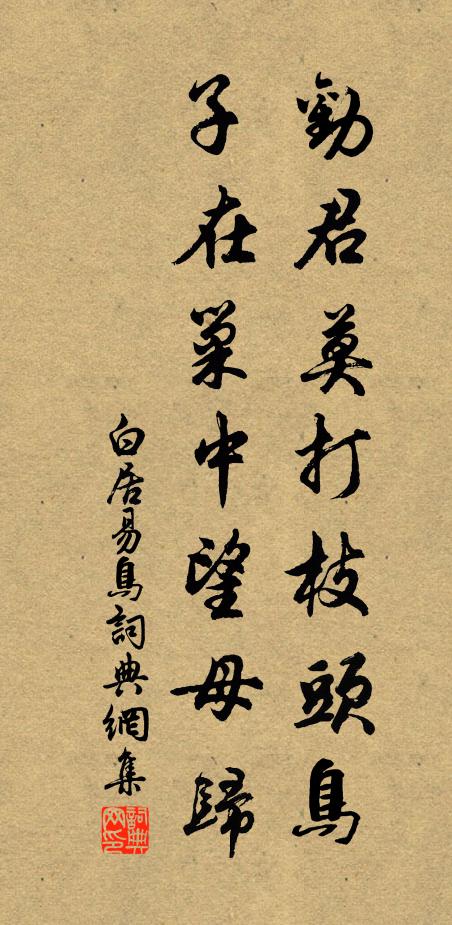 勸君莫打枝頭鳥
子在巢中望母歸
白居易鳥詞典網集
詞典
网印